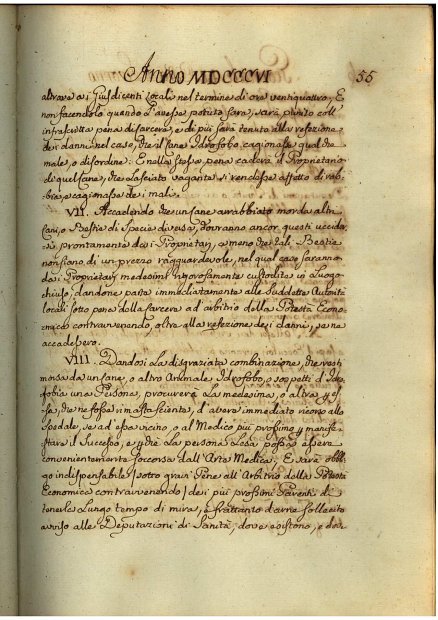 Anno MDCCCVI 55
altrove a i Giusdicenti locali nel termine di ore ventiquattro, E
non facendolo quando l'avesse potuto fare, sarà punito coll'
infrascritta pena di carcere, e di più sarà tenuto alla refezione
dei danni nel caso, che il Cane Idrofobo cagionasse qualche
male, o disordine: E nella stessa pena caderà il Proprietario
di quel Cane, che lasciato vagante si rendesse affetto di rab-
bia, e cagionasse dei mali.
VII. Accadendo che un Cane arrabbiato morda altri
Cani, o Bestie di Specie diversa, dovranno ancor questi uccider-
si prontamente dai Proprietarj, a meno che tali Bestie
non siano di un prezzo ragguardevole, nel qual caso saranno
da i Proprietarj medesimi rigorosamente custodite in luogo
chiuso, dandone parte immediatamente alle suddette Autorità
locali sotto pena della Carcere ad arbitrio della Potestà Econo-
mica contravvenendo, oltre alla refezione dei danni, se ne
accadessero.
VIII. Dandosi la disgraziata combinazione, che resti
morsa da un Cane, o altro Animale Idrofobo, o sospetti d'Idro-
fobia una Persona, procurerà la medesima, o altra per
essa, che ne fosse rimasta sciente, d'avere immediato ricorso allo
Spedale, se ad essa vicino, o al Medico più prossimo, manife-
stare il Successo, e perchè la persona lesa possa essere
convenientemente soccorsa dall'Arte Medica; E sarà obbli-
go indispensabile (sotto gravi Pene all'Arbitrio della Potestà
Economica contravvenendo) dei più prossimi Parenti di
tenerla lungo tempo di mira, e frattanto darne sollecito
avviso alle Deputazioni di Sanità, dove esistono, e dove